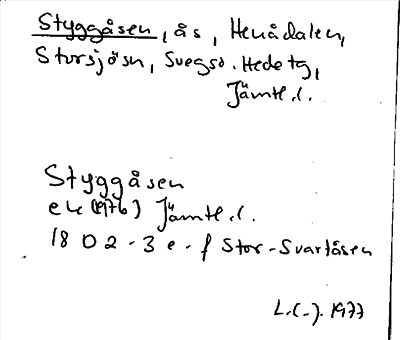 Styggåsen, ås, Henådalen,
Storsjösn, Svegs o. Hede tg,
Jämtl. l.
Styggåsen
ek (1976) Jämtl. l.
18 D 2-3 e-f Stor-Svartåsen
L.(-). 1977